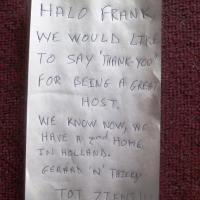 HALO FRANK,
WE WOULD LIKE
TO SAY 'THANK-YOU'
FOR BEING A GREAT
HOST.
WE KNOW NOW, WE
HAVE A 2nd HOME
IN HOLLAND.
GERARD 'N'
TOT ZIENS